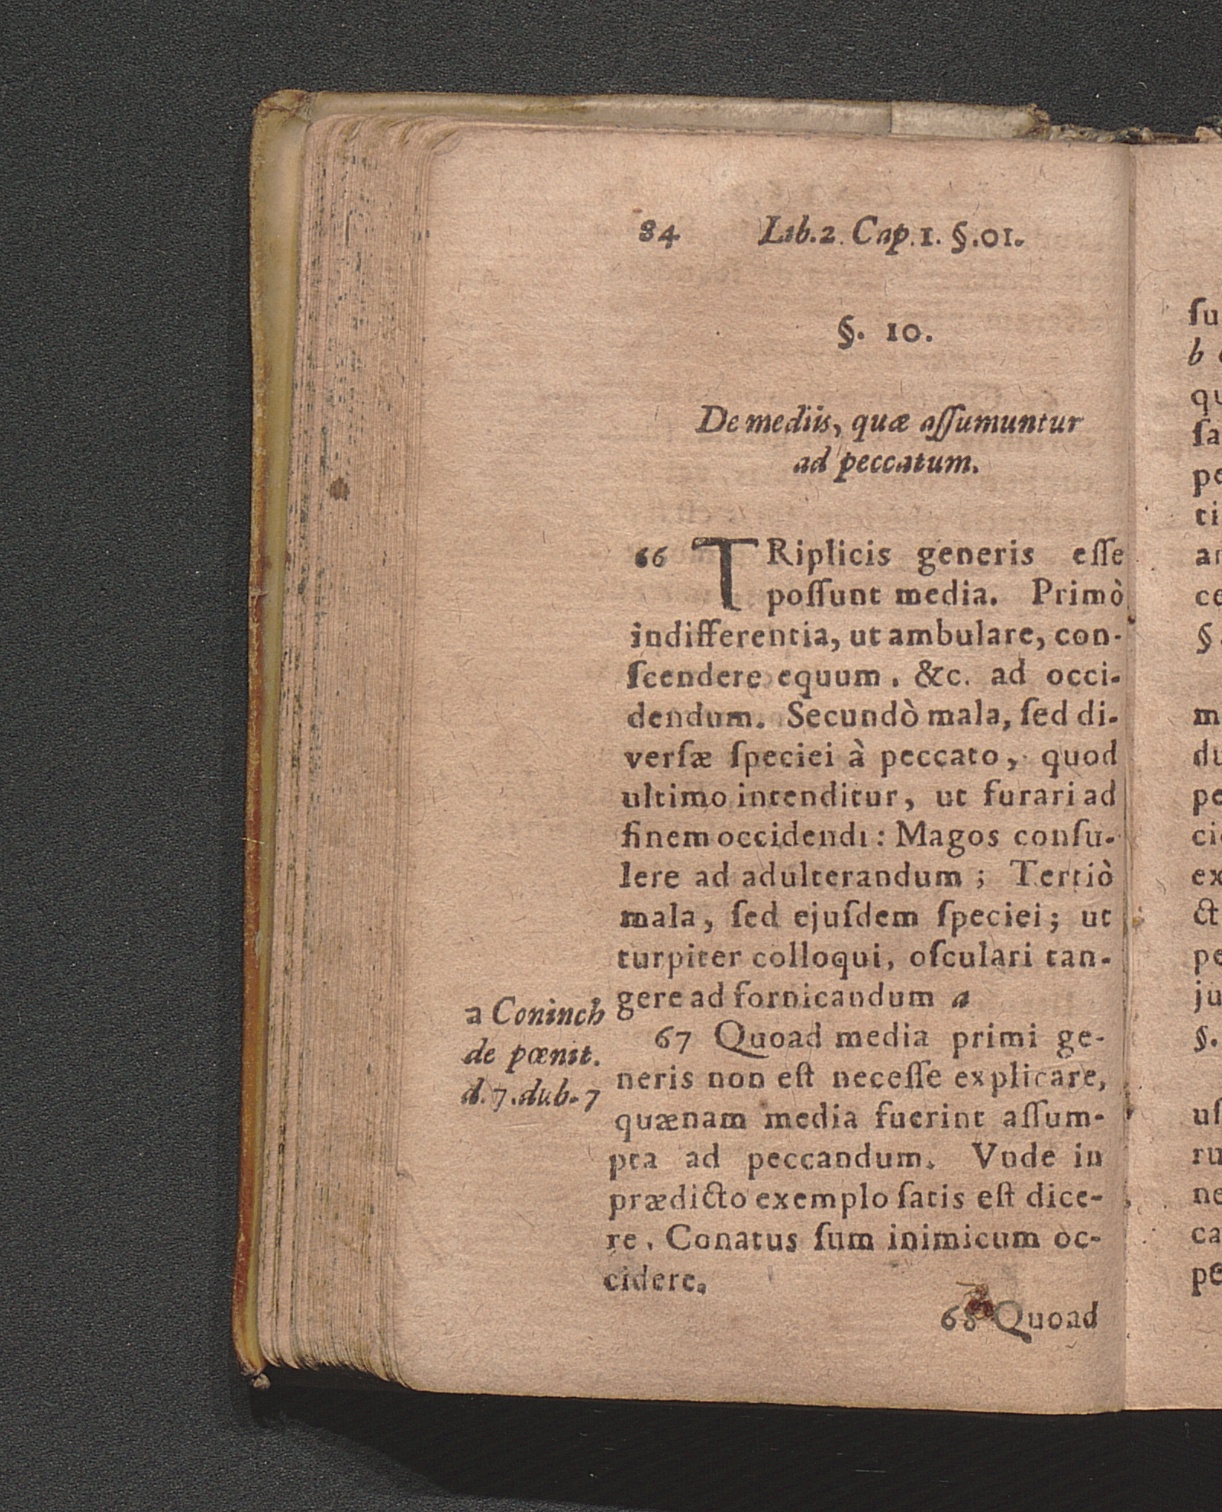 84 Lib.2. Cap.1. §.01.
§. 10.
De mediis, quæ aſſumuntur
ad peccatum.
66 TRiplicis generis eſſe
poſſunt media. Primò
indifferentia, ut ambulare, con-
ſcendere equum, &c. ad occi-
dendum. Secundò mala, ſed di-
verſæ ſpeciei à peccato, quod
ultimo intenditur, ut furari ad
finem occidendi: Magos conſu-
lere ad adulterandum; Tertiò
mala, ſed ejuſdem ſpeciei; ut
turpiter colloqui, oſculari tan-
gere ad fornicandum a
a Coninch
de pœnit.
d.7.dub.7
67 Quoad media primi ge-
neris non eſt neceſſe explicare,
quænam media fuerint aſſum-
pta ad peccandum. Vnde in
prædicto exemplo ſatis eſt dice-
re. Conatus ſum inimicum oc-
cidere.
68 Quoad
ſu
b
qu
ſa
pe
ti
ce
§.
m
du
pe
ex
ct
pe
ju
§.
uſ
ru
ne
ca